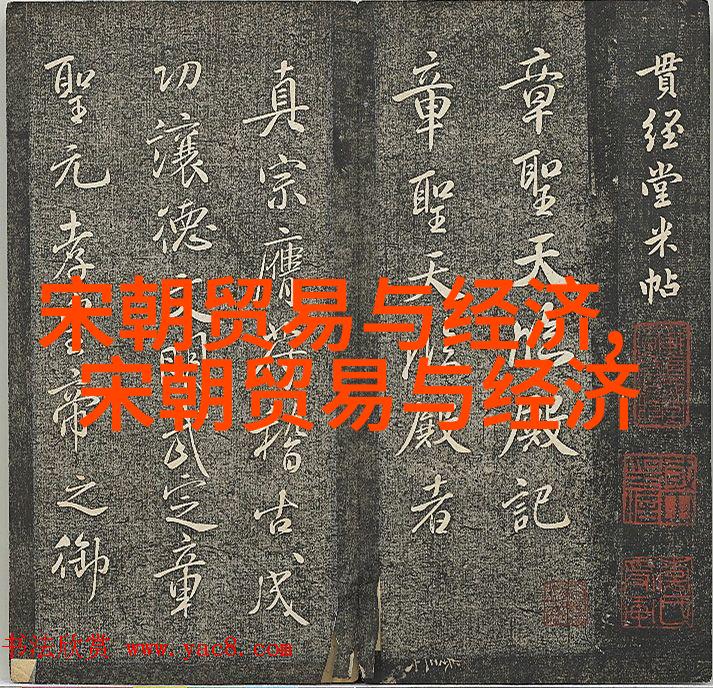 貫經堂米帖
章聖天臨殿記
章聖天臨殿者
真宗膺符稽古成
功讓德文明武定章
聖元孝皇帝之御
宋朝贸易与经济,
宋朝贸易与经济
书法欣赏 www.yac8.com